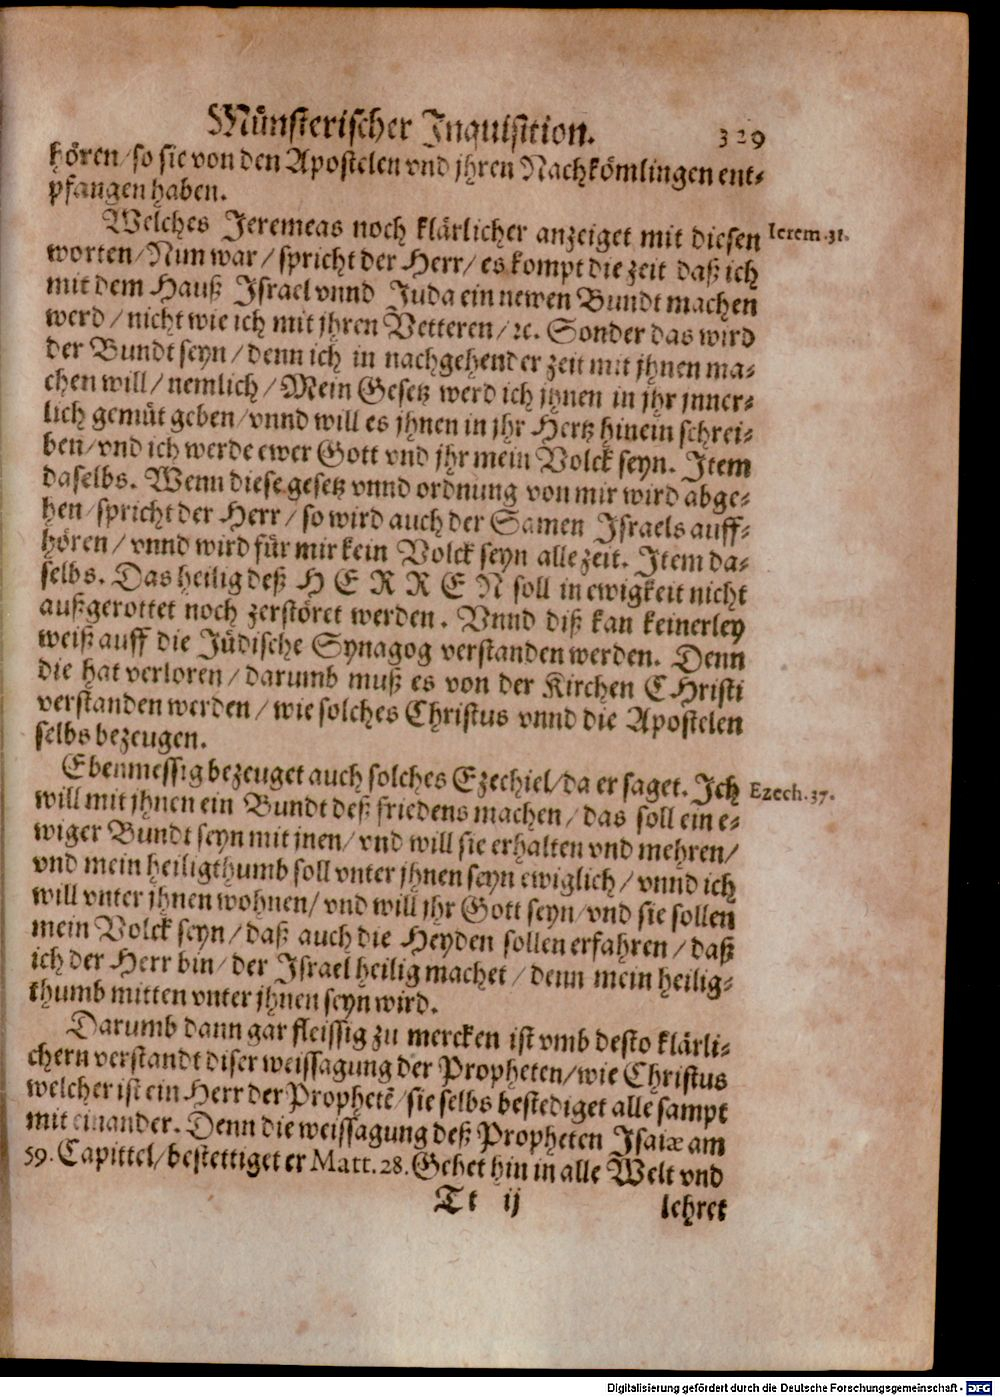 Münsterischer Inquisition. 329
hören/so sie von den Apostelen vnd jhren Nachkömlingen ent-
pfangen haben.
Welches Jeremeas noch klärlicher anzeiget mit diesen Ierem.31.
worten/Nun war/spricht der Herr/es kompt die zeit daß ich
mit dem Hauß Israel vnnd Juda ein newen Bundt machen
werd/nicht wie ich mit jhren Vetteren/ꝛc. Sonder das wird
der Bundt seyn/denn ich in nachgehender zeit mit jhnen ma-
chen will/nemlich/Mein Gesetz werd ich jhnen in jhr jnner-
lich gemüt geben/vnnd will es jhnen in jhr Hertz hinein schrei-
ben/vnd ich werde ewer Gott vnd jhr mein Volck seyn. Item
daselbs. Wenn diese gesetz vnnd ordnung von mir wird abge-
hen/spricht der Herr/so wird auch der Samen Israels auff-
hören/vnnd wird für mir kein Volck seyn alle zeit. Item da-
selbs. Das heilig deß HERREN soll in ewigkeit nicht
außgerottet noch zerstöret werden. Vnnd diß kan keinerley
weiß auff die Jüdische Synagog verstanden werden. Denn
die hat verloren/darumb muß es von der Kirchen CHristi
verstanden werden/wie solches Christus vnnd die Apostelen
selbs bezeugen.
Ebenmessig bezeuget auch solches Ezechiel/da er saget. Ich Ezech.37.
will mit jhnen ein Bundt deß friedens machen/das soll ein e-
wiger Bundt seyn mit inen/vnd will sie erhalten vnd mehren/
vnd mein heiligthumb soll vnter jhnen seyn ewiglich/vnnd ich
will vnter jhnen wohnen/vnd will jhr Gott seyn/vnd sie sollen
mein Volck seyn/daß auch die Heyden sollen erfahren/daß
ich der Herr bin/der Israel heilig machet/denn mein heilig-
thumb mitten vnter jhnen seyn wird.
Darumb dann gar fleissig zu mercken ist vmb desto klärli-
chern verstandt diser weissagung der Propheten/wie Christus
welcher ist ein Herr der Prophetē/sie selbs bestediget alle sampt
mit einander. Denn die weissagung deß Propheten Isaiæ am
59. Capittel/bestettiget er Matt.28. Gehet hin in alle Welt vnd
Tt ij lehret
Digitalisierung gefördert durch die Deutsche Forschungsgemeinschaft - DFG